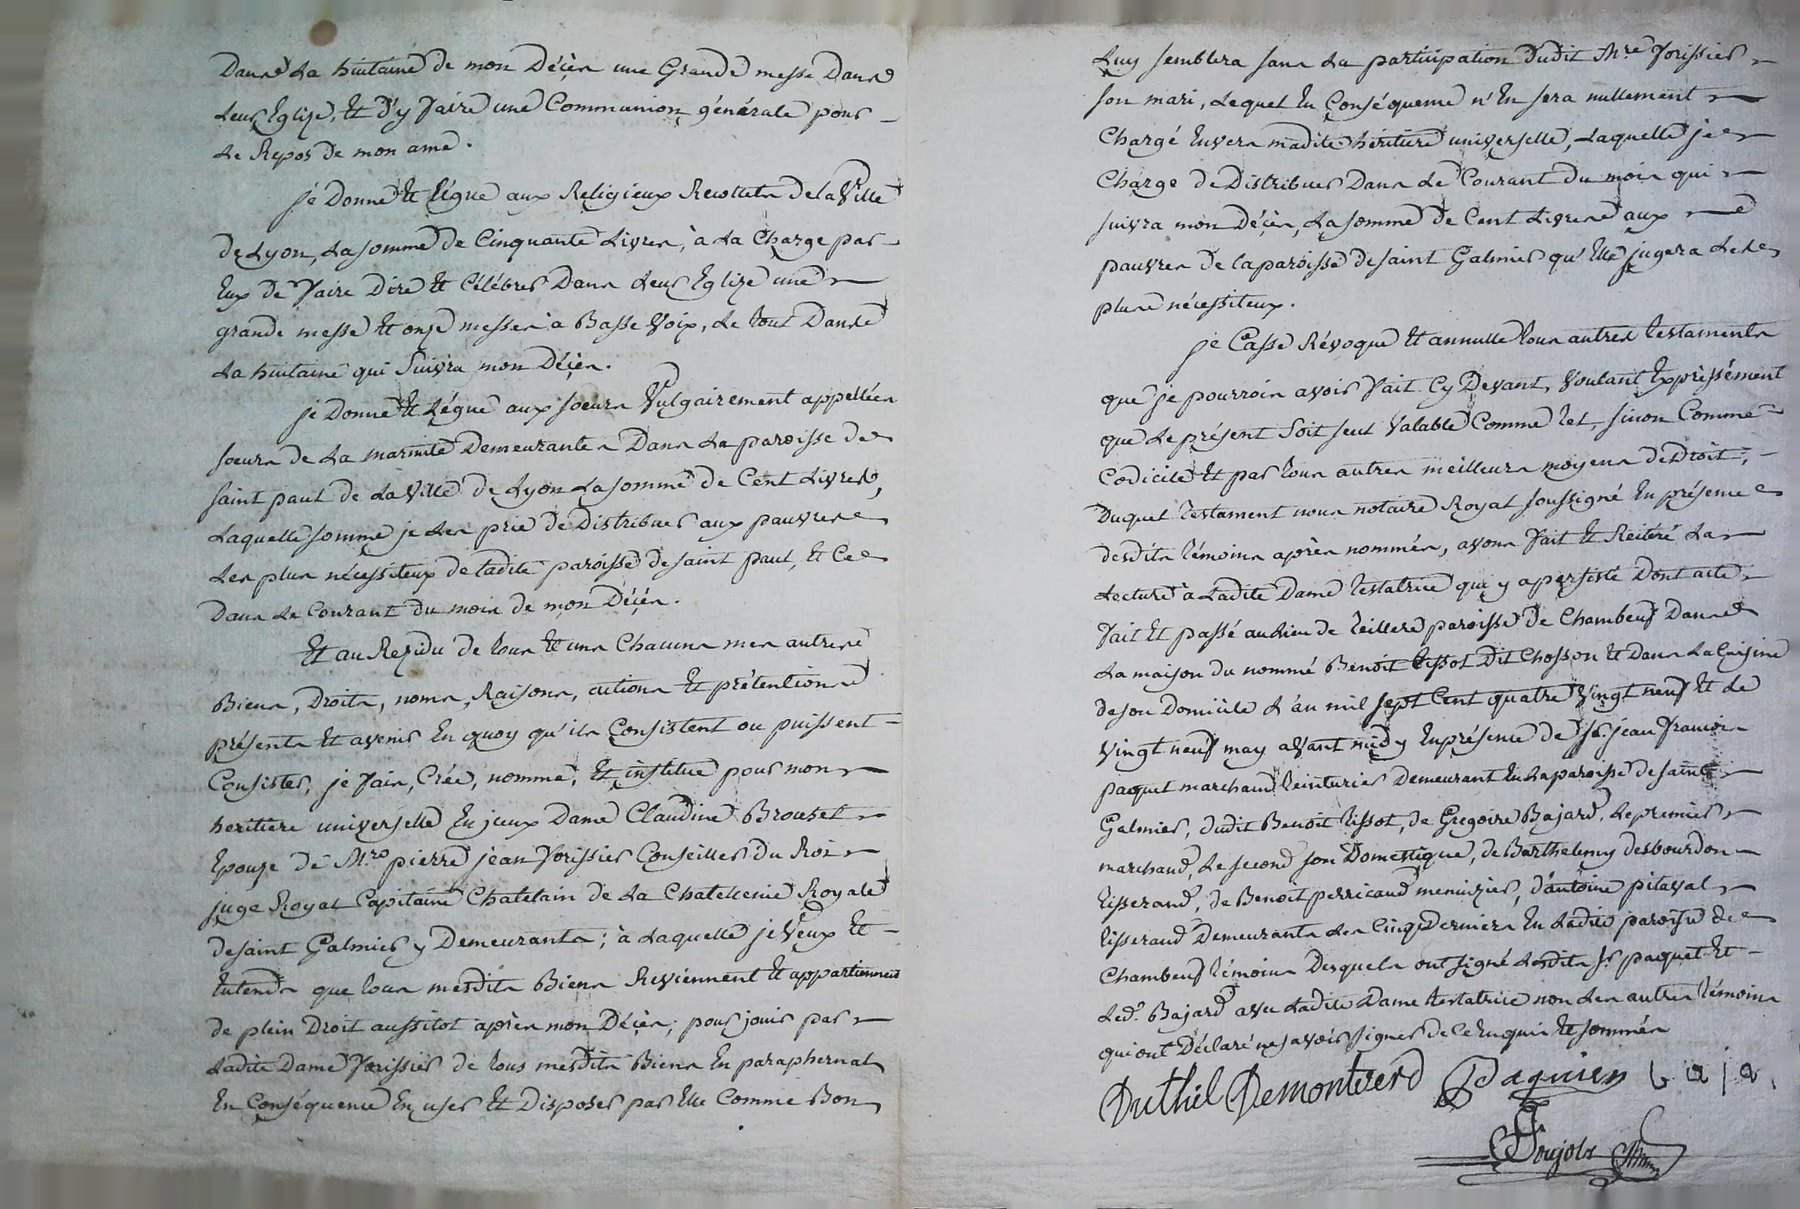 Dans la huitaine de mon Décès une Grande messe Dans
Leur Eglize, et d'y faire une Communion générale pour
Le Repos de mon ame.
je Donne et Légue aux Religieux Recollets de la Ville
de Lyon, la somme de Cinquante Livres, à la Charge par
Eux de faire Dire et Célébrer Dans Leur Eglize une
grande messe et onze messes à Basse Voix, Le tout Dans
La huitaine qui Suivra mon Décès.
je Donne et Légue aux soeurs Vulgairement appellées
soeurs de La marmite Demeurantes Dans La paroisse de
saint paul de La Ville de Lyon La somme de Cent Livres,
Laquelle somme je Les prie de Distribuer aux pauvres
Les plus nécessiteux de ladite paroisse de saint paul, et Ce
Dans Le Courant du mois de mon Décès.
Et au Rezidu de tous et uns Chacuns mes autres
Biens, Droits, noms, Raisons, actions et prétentions
présents et avenir En quoy qu'ils Consistent ou puissent
Consister, je fais, Crée, nomme, et institue pour mon
heritiere universelle En jceux Dame Claudine Brouset
Epouse de Mre pierre jean forissier Conseiller du Roi
juge Royal Capitaine Chatelain de La Chatellenie Royale
de saint Galmier y Demeurants; à Laquelle je Veux et
Entends que tous mesdits Biens Reviennent et appartiennent
de plein Droit aussitot après mon Décès; pour jouir par
Ladite Dame forissier de tous mesdits Biens En paraphernal
En Conséquence En user et Disposer par Elle Comme Bon
Luy semblera sans La participation Dudit Mre forissier
son mari, Lequel En Conséquence n'En sera nullement
Chargé Envers madite héritiere universelle, Laquelle je
Charge de Distribuer Dans Le Courant du mois qui
suivra mon Décès, La somme de Cent Livres aux
pauvres de la paroisse de saint Galmier qu'Elle jugera Les
plus nécessiteux.
je Casse Révoque et annulle tous autres testaments
que je pourrois avoir fait Cy Devant, Voulant Expréssément
que Le présent Soit seul Valable Comme tel, sinon Comme
Codicile et par tous autres meilleurs moyens de Droit;
Duquel testament nous notaire Royal soussigné En présence
desdits témoins après nommés, avons fait et Réitéré La
Lecture à Ladite Dame testatrice qui y a persisté Dont acte
fait et passé au Lieu de teillere paroisse de Chambeuf Dans
La maison du nommé Benoit tissot Dit Chosson et Dans La Cuisine
de son Domicile L'an mil sept Cent quatre Vingt neuf et Le
Vingt neuf may avant midy En présence de sr. jean francois
paquet marchand teinturier Demeurant En La paroisse de saint
Galmier, dudit Benoit tissot, de Gregoire Bajard, Le premier
marchand, Le second son Domestique, de Barthelemy desbourdon
tisserand, de Benoit perricaud menuizier, d'antoine pitaval
tisserand Demeurants Les Cinq Derniers En Ladite paroisse de
Chambeuf témoins Desquels ont signé Lesdits sr paquet et
Led. Bajard avec Ladite Dame testatrice non Les autres témoins
qui ont Déclaré ne savoir signer de Ce Enquis et sommés
Duthel Demontverd